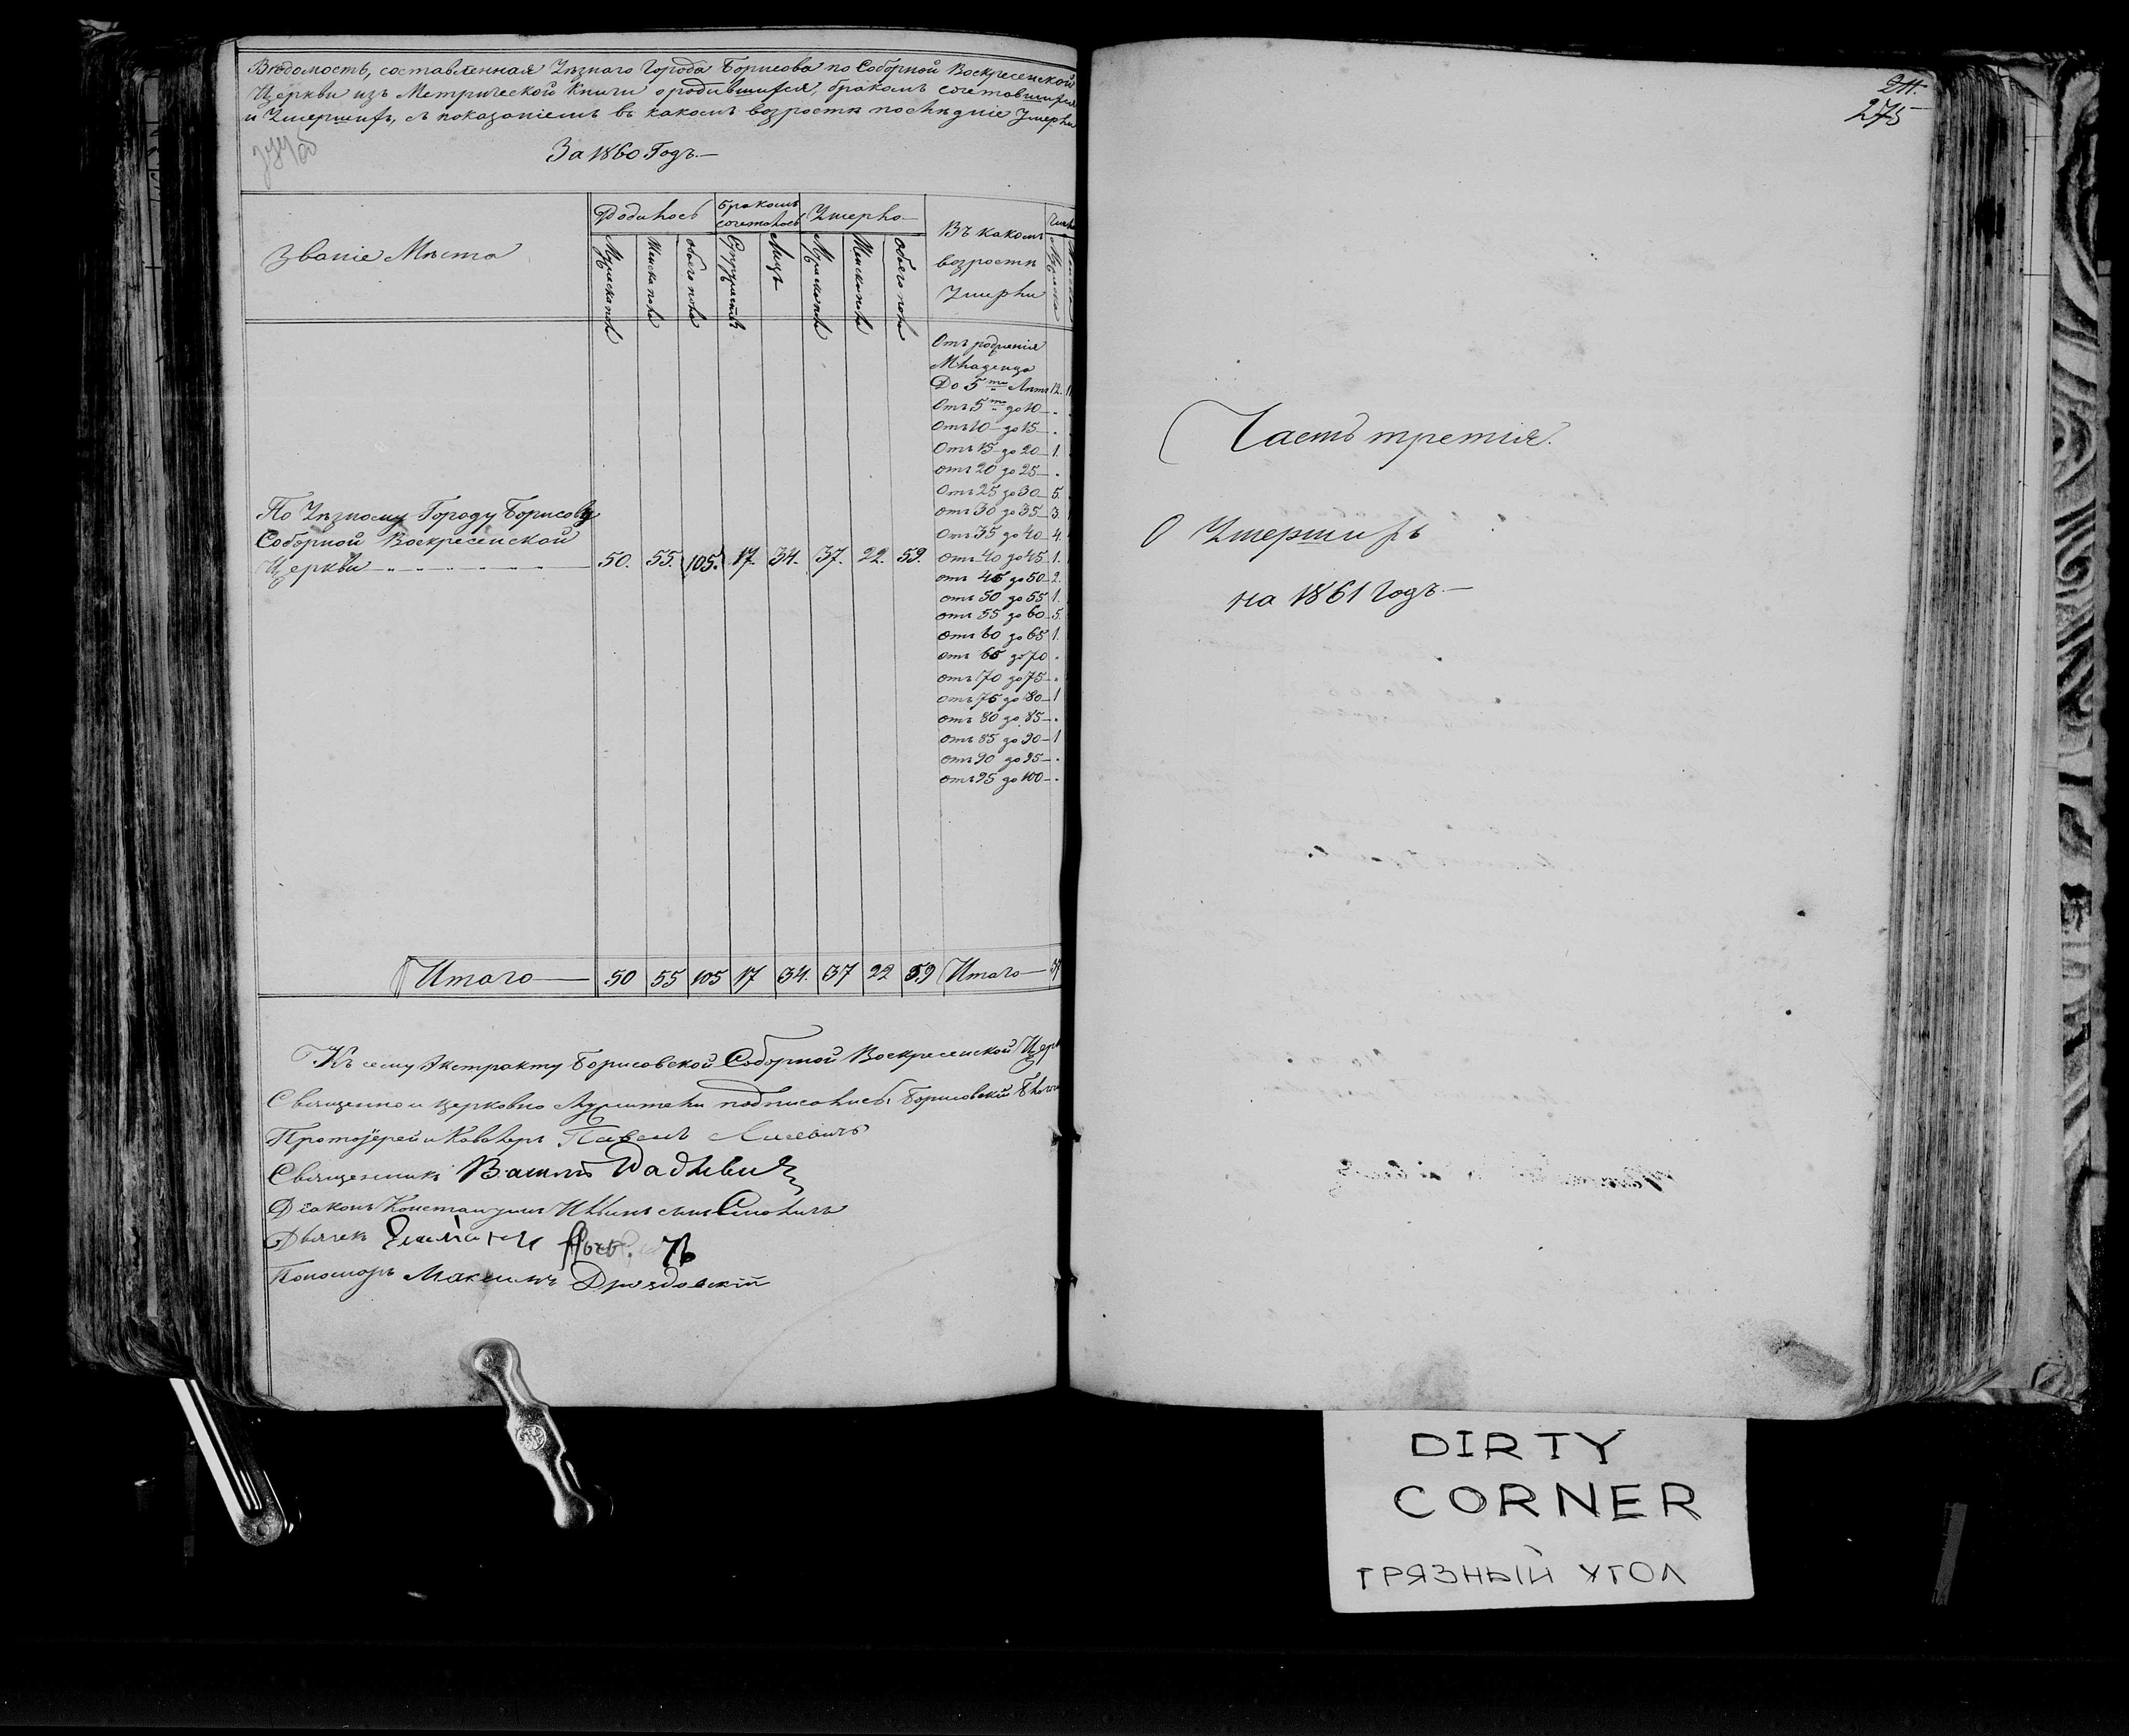 Вѣдомость, составленная Уѣзнаго Города Борисова по Соборной Воскресенской
Церкви изъ Метрической Книги о родившихся, бракомъ сочетавшихся
и Умершихъ, съ показаніемъ въ какомъ возростѣ послѣдніе Умерли
За 1860 Годъ.—
Званіе Мѣста
Родилось
Бракомъ сочеталось
Умерло
Въ какомъ возростѣ Умерли
Мужеска пола
Женска пола
Обоего пола
Супружествъ
Лицъ
Мужеска пола
Женска пола
Обоего пола
Отъ рожденія
Младенца
До 5ти Лѣтъ 12.
Отъ 5ти до 10 — .
Отъ 10 до 15 — .
Отъ 15 до 20 — 1.
отъ 20 до 25 — .
Отъ 25 до 30 — 5.
отъ 30 до 35 — 3.
Отъ 35 до 40 — 4.
отъ 40 до 45 — 1.
отъ 45 до 50 — 2.
отъ 50 до 55 1.
отъ 55 до 60 — 5.
отъ 60 до 65 1.
отъ 65 до 70 .
отъ 70 до 75 — .
отъ 75 до 80 — 1
отъ 80 до 85 — .
отъ 85 до 90 — 1
отъ 90 до 95 — .
отъ 95 до 100 — .
По Уѣзному Городу Борисову
Соборной Воскресенской
Церкви 50. 55. 105. 17. 34. 37. 22. 59.
Итого — 50 55 105 17 34. 37 22 59 Итого — 37
Къ сему Экстракту Борисовской Соборной Воскресенской
Священно и церковно служители подписались: Борисовскій
Протоіерей и Кавалеръ Павелъ
Священникъ Василій
Діаконъ Константинъ
Дьячекъ
Пономарь Максимъ Дроздовскій
211.
275
Часть третія.
О Умершихъ
на 1861 Годъ.—
DIRTY
CORNER
ГРЯЗНЫЙ УГОЛ